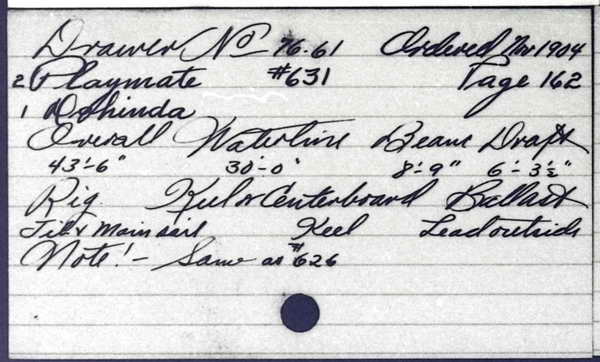 Drawer No 76-61 Ordered Nov 1904
2 Playmate #631 Page 162
1 Dorhinda
Overall Waterline Beam Draft
43'-6" 30'-0" 8'-9" 6'-3½"
Rig Keel or Centerboard Ballast
Jib & Main sail Keel Lead outside
Note! - Same as #626